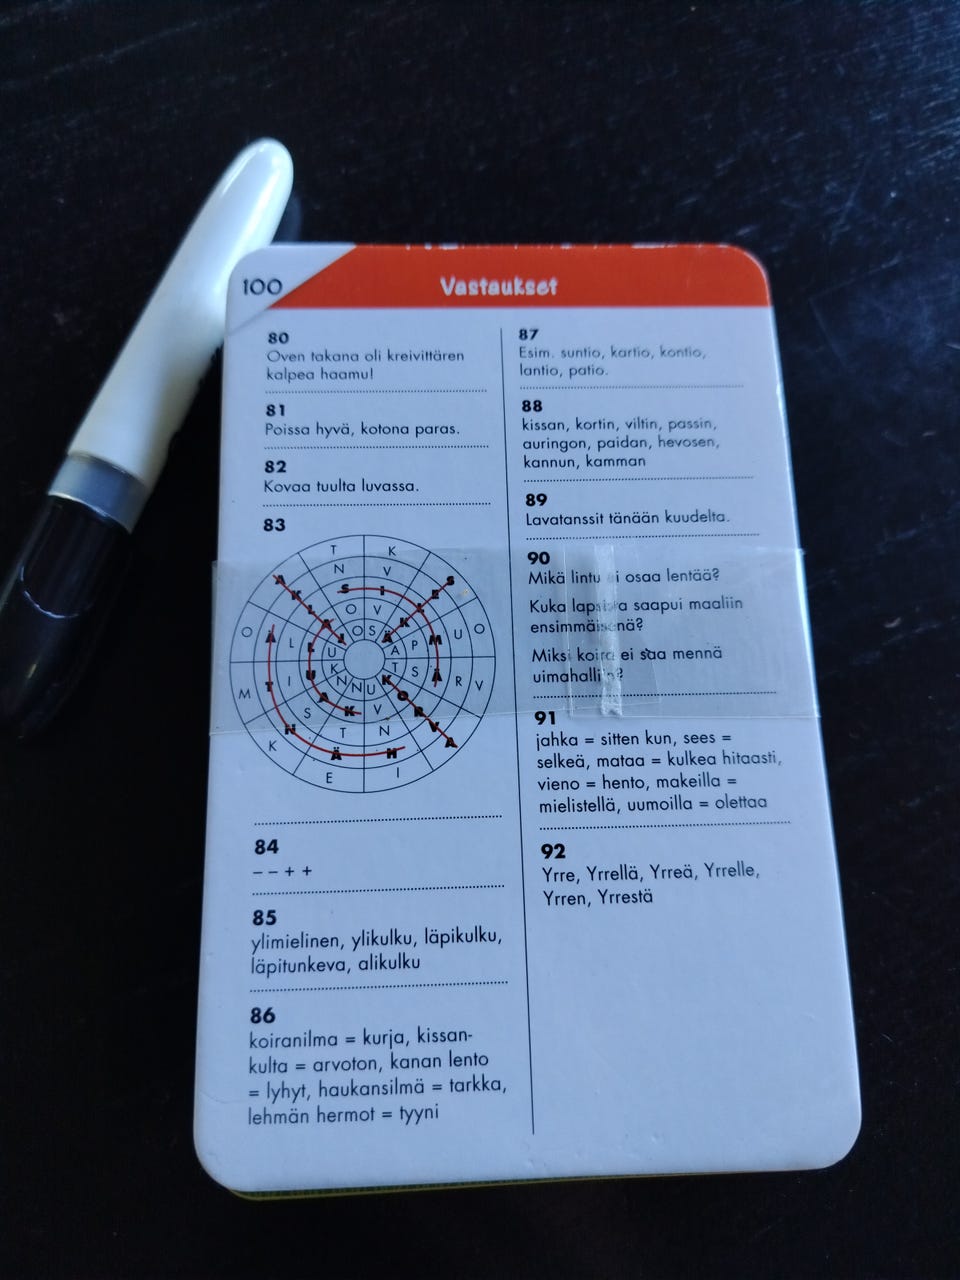 100
Vastaukset
80
Oven takana oli kreivittären
kalpea haamu!
81
Poissa hyvä, kotona paras.
82
Kovaa tuulta luvassa.
83
84
– – + +
85
ylimielinen, ylikulku, läpikulku,
läpitunkeva, alikulku
86
koiranilma = kurja, kissan-
kulta = arvoton, kanan lento
= lyhyt, haukansilmä = tarkka,
lehmän hermot = tyyni
87
Esim. suntio, kartio, kontio,
lantio, patio.
88
kissan, kortin, viltin, passin,
auringon, paidan, hevosen,
kannun, kamman
89
Lavatanssit tänään kuudelta.
90
Mikä lintu ei osaa lentää?
Kuka lapsista saapui maaliin
ensimmäisenä?
Miksi koira ei saa mennä
uimahalliin?
91
jahka = sitten kun, sees =
selkeä, mataa = kulkea hitaasti,
vieno = hento, makeilla =
mielistellä, uumoilla = olettaa
92
Yrre, Yrrellä, Yrreä, Yrrelle,
Yrren, Yrrestä